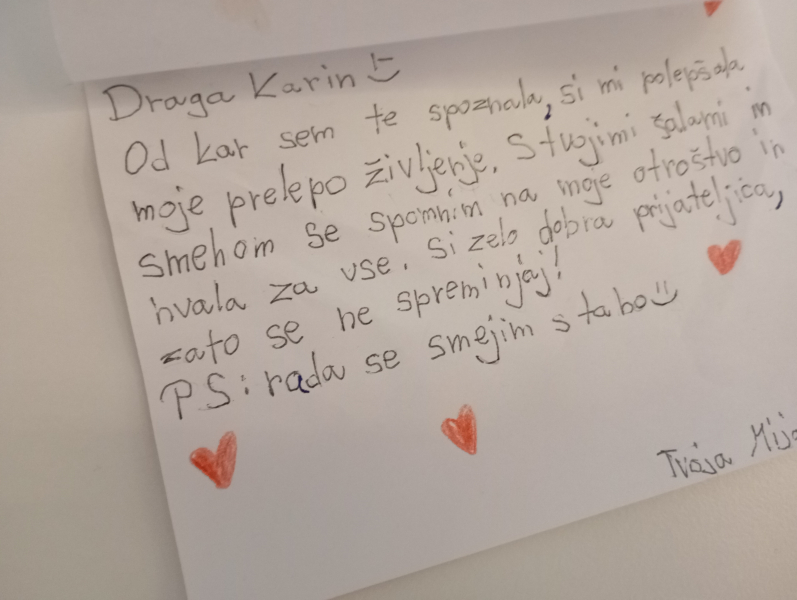 Draga Karin
Od kar sem te spoznala, si mi polepšala
moje prelepo življenje. S tvojimi šalami in
smehom se spomnim na moje otroštvo in
hvala za vse. Si zelo dobra prijateljica,
zato se ne spreminjaj!
PS: rada se smejim s tabo
Tvoja